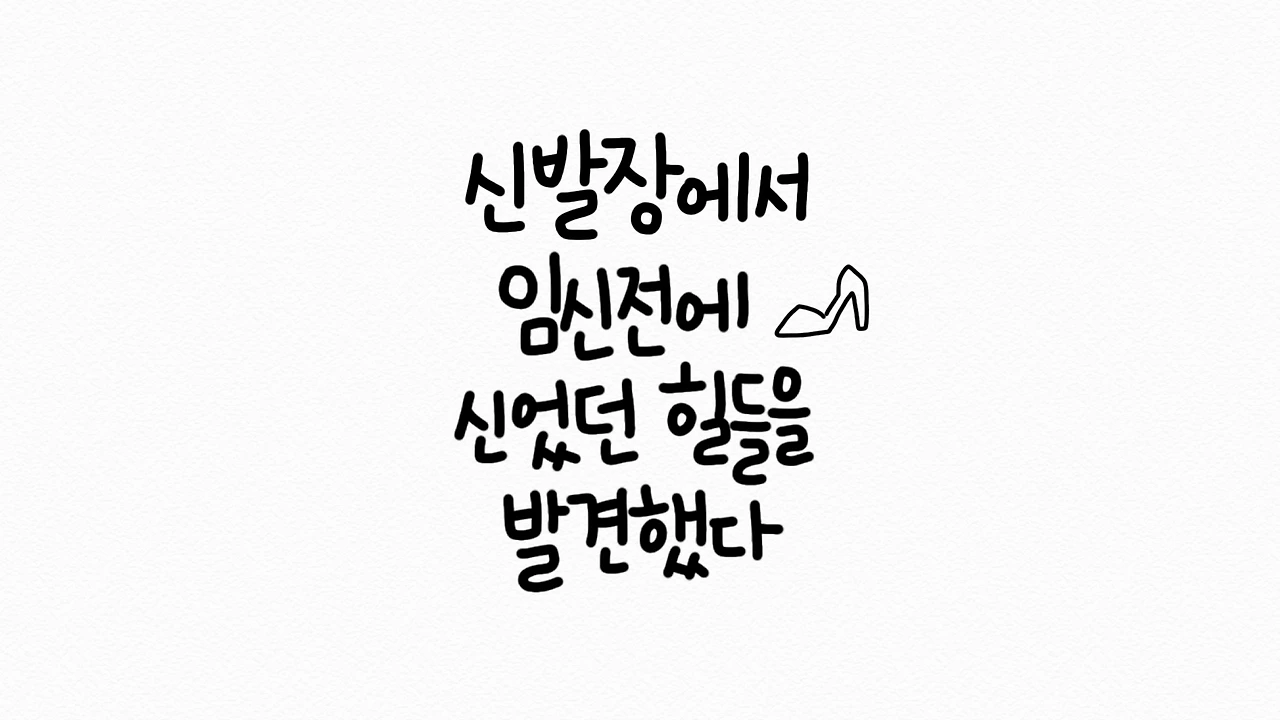 신발장에서
임신전에
신었던 힐들을
발견했다